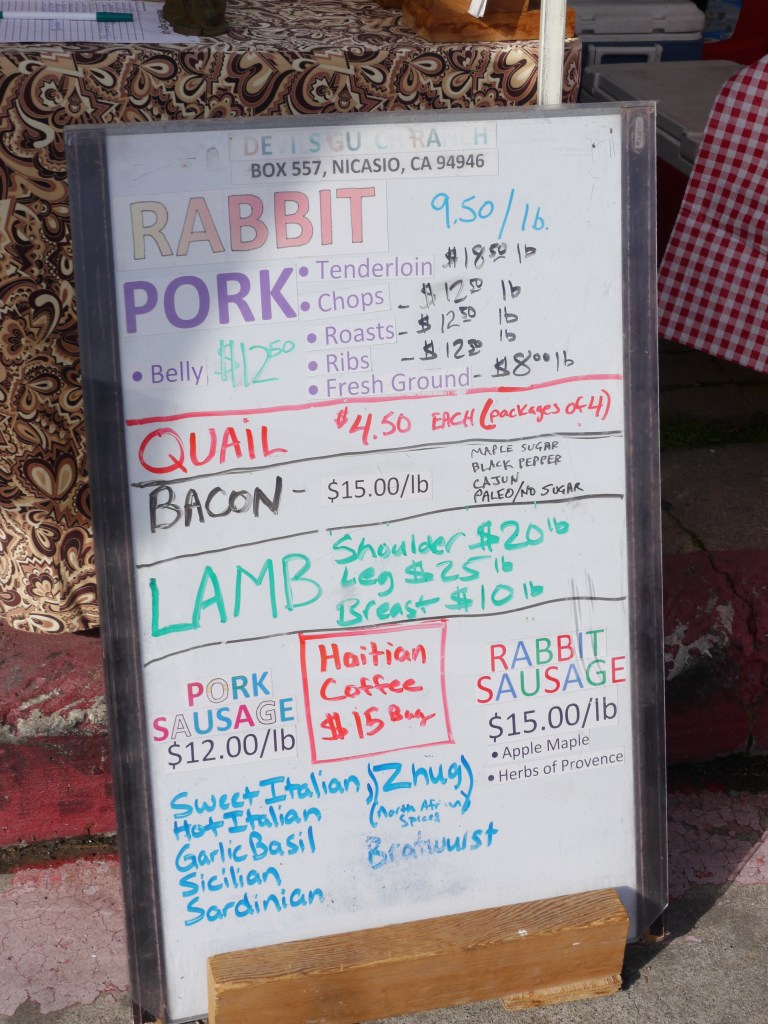 DEVILS GULCH RANCH
BOX 557, NICASIO, CA 94946
RABBIT 9.50/lb.
PORK
• Tenderloin $18 50 lb
• Chops - $12 50 lb
• Roasts - $12 50 lb
• Ribs - $12 50 lb
• Fresh Ground - $8 00 lb
• Belly $12 50
QUAIL $4.50 EACH (packages of 4)
BACON - $15.00/lb
MAPLE SUGAR
BLACK PEPPER
CAJUN
PALEO/NO SUGAR
LAMB
Shoulder $20 lb
Leg $25 lb
Breast $10 lb
PORK
SAUSAGE
$12.00/lb
Haitian
Coffee
$15 Bag
RABBIT
SAUSAGE
$15.00/lb
• Apple Maple
• Herbs of Provence
Sweet Italian,
Hot Italian
Garlic Basil
Sicilian
Sardinian
Zhug
(North African
Spices)
Bratwurst